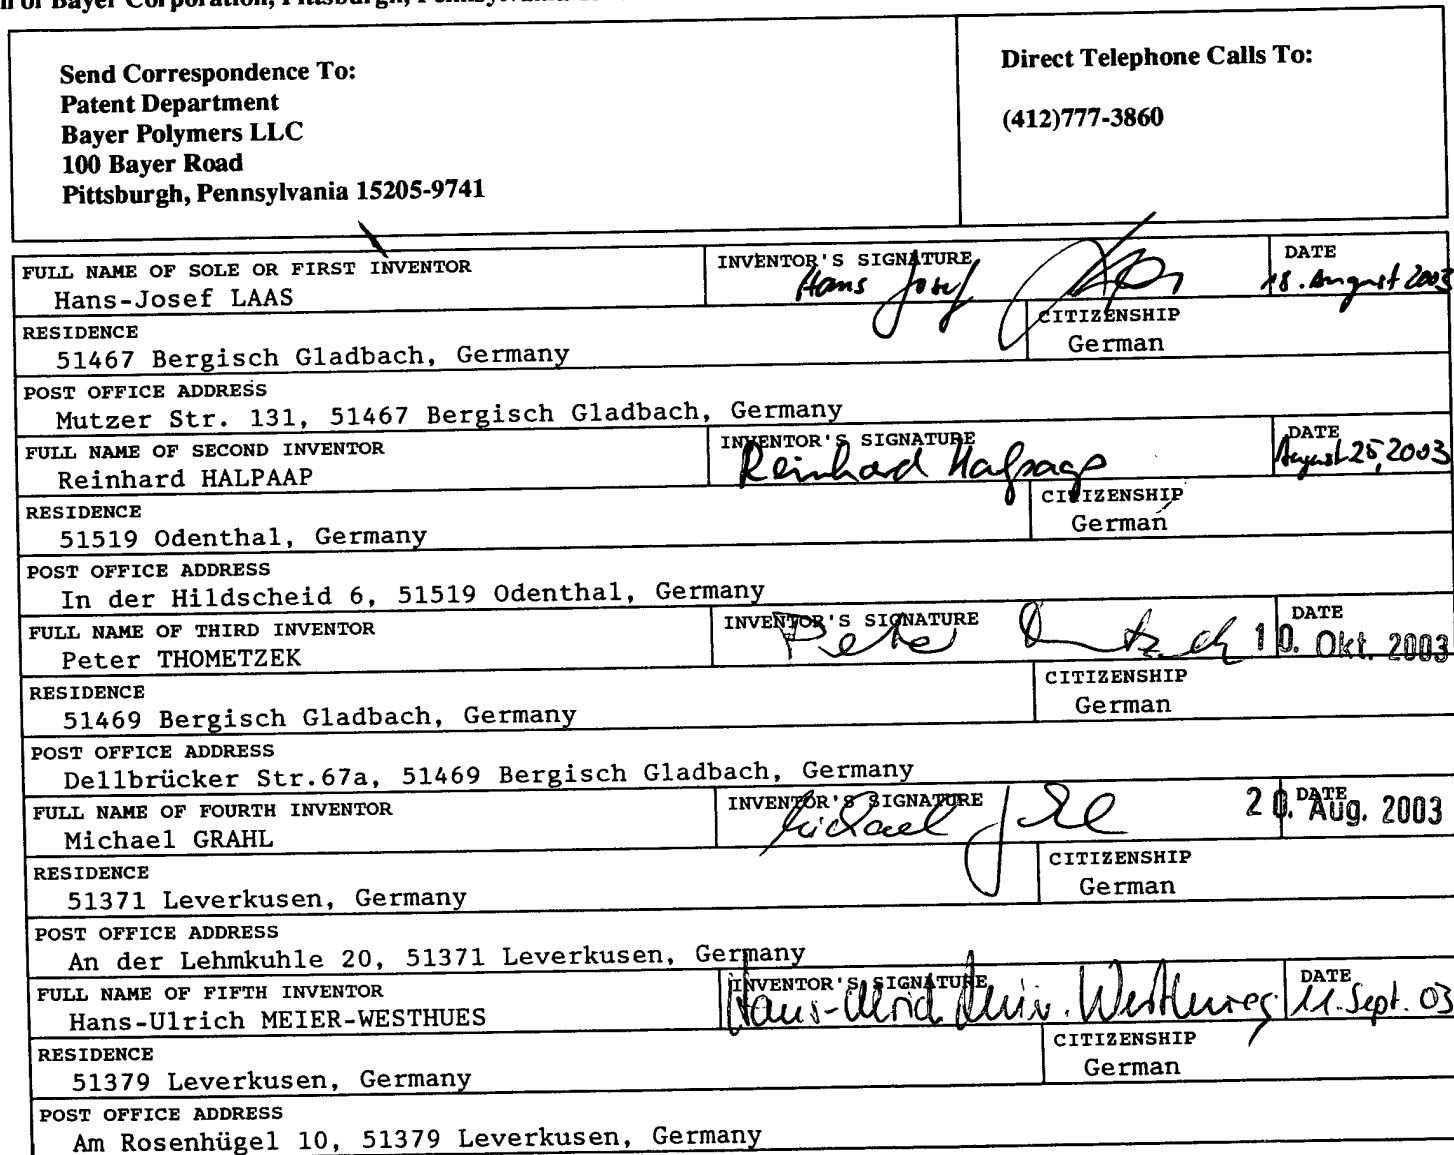 of Bayer Corporation, Pittsburgh, Pennsylvania
Send Correspondence To:
Patent Department
Bayer Polymers LLC
100 Bayer Road
Pittsburgh, Pennsylvania 15205-9741
Direct Telephone Calls To:
(412)777-3860
FULL NAME OF SOLE OR FIRST INVENTOR
Hans-Josef LAAS
INVENTOR'S SIGNATURE
Hans Josef
DATE
18. August 2003
RESIDENCE
51467 Bergisch Gladbach, Germany
CITIZENSHIP
German
POST OFFICE ADDRESS
Mutzer Str. 131, 51467 Bergisch Gladbach, Germany
FULL NAME OF SECOND INVENTOR
Reinhard HALPAAP
INVENTOR'S SIGNATURE
Reinhard Halpaap
DATE
August 25, 2003
RESIDENCE
51519 Odenthal, Germany
CITIZENSHIP
German
POST OFFICE ADDRESS
In der Hildscheid 6, 51519 Odenthal, Germany
FULL NAME OF THIRD INVENTOR
Peter THOMETZEK
INVENTOR'S SIGNATURE
Peter
DATE
10. Okt. 2003
RESIDENCE
51469 Bergisch Gladbach, Germany
CITIZENSHIP
German
POST OFFICE ADDRESS
Dellbrücker Str.67a, 51469 Bergisch Gladbach, Germany
FULL NAME OF FOURTH INVENTOR
Michael GRAHL
INVENTOR'S SIGNATURE
Michael
DATE
20. Aug. 2003
RESIDENCE
51371 Leverkusen, Germany
CITIZENSHIP
German
POST OFFICE ADDRESS
An der Lehmkuhle 20, 51371 Leverkusen, Germany
FULL NAME OF FIFTH INVENTOR
Hans-Ulrich MEIER-WESTHUES
INVENTOR'S SIGNATURE
Hans-Ulrich Meier-Westhues
DATE
11. Sept. 03
RESIDENCE
51379 Leverkusen, Germany
CITIZENSHIP
German
POST OFFICE ADDRESS
Am Rosenhügel 10, 51379 Leverkusen, Germany